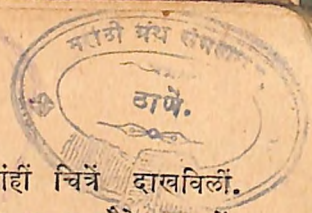 मराठी ग्रंथ संग्रहालय
ठाणें.
ांहीं चित्रें दाखविलीं.